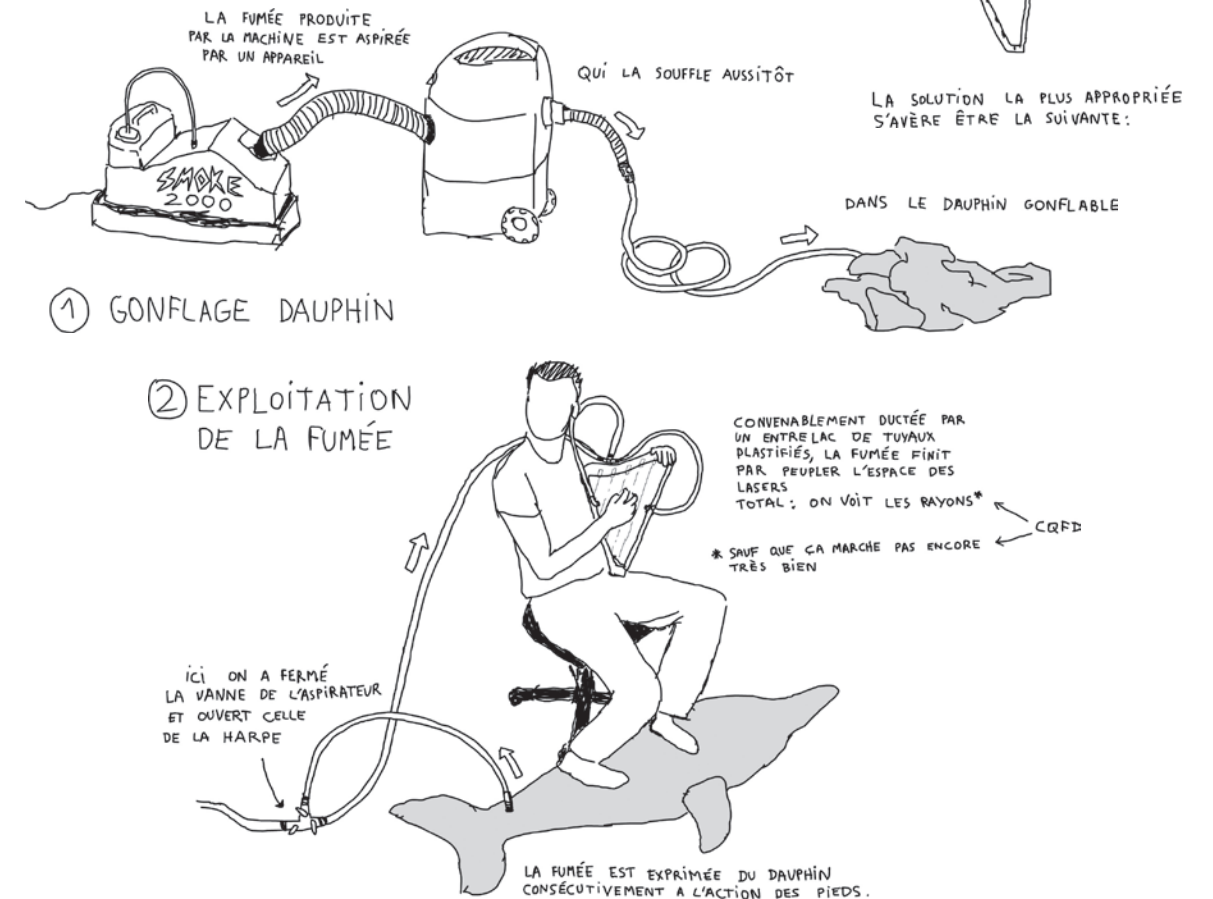 LA FUMÉE PRODUITE
PAR LA MACHINE EST ASPIRÉE
PAR UN APPAREIL
QUI LA SOUFFLE AUSSITÔT
LA SOLUTION LA PLUS APPROPRIÉE
S'AVÈRE ÊTRE LA SUIVANTE:
SMOKE
2000
DANS LE DAUPHIN GONFLABLE
① GONFLAGE DAUPHIN
② EXPLOITATION
DE LA FUMÉE
CONVENABLEMENT DUCTÉE PAR
UN ENTRELAC DE TUYAUX
PLASTIFIÉS, LA FUMÉE FINIT
PAR PEUPLER L'ESPACE DES
LASERS
TOTAL: ON VOIT LES RAYONS*
CQFD
* SAUF QUE ÇA MARCHE PAS ENCORE
TRÈS BIEN
ICI ON A FERMÉ
LA VANNE DE L'ASPIRATEUR
ET OUVERT CELLE
DE LA HARPE
LA FUMÉE EST EXPRIMÉE DU DAUPHIN
CONSÉCUTIVEMENT A L'ACTION DES PIEDS.